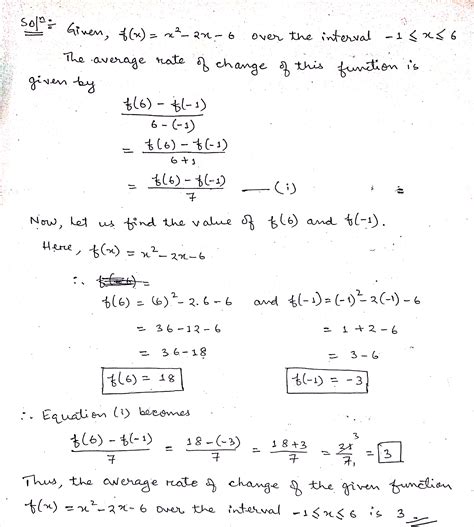 Solⁿ:- Given, f(x) = x² - 2x - 6 over the interval -1 ≤ x ≤ 6
The average rate of change of this function is
given by
f(6) - f(-1) / 6 - (-1)
= f(6) - f(-1) / 6 + 1
= f(6) - f(-1) / 7 —(i)
Now, let us find the value of f(6) and f(-1).
Here, f(x) = x² - 2x - 6
∴
f(6) = (6)² - 2.6 - 6 and f(-1) = (-1)² - 2(-1) - 6
= 36 - 12 - 6 = 1 + 2 - 6
= 36 - 18 = 3 - 6
f(6) = 18 f(-1) = -3
∴ Equation (i) becomes
f(6) - f(-1) / 7 = 18 - (-3) / 7 = 18 + 3 / 7 = 21 3 / 7 = 3
Thus, the average rate of change of the given function
f(x) = x² - 2x - 6 over the interval -1 ≤ x ≤ 6 is 3